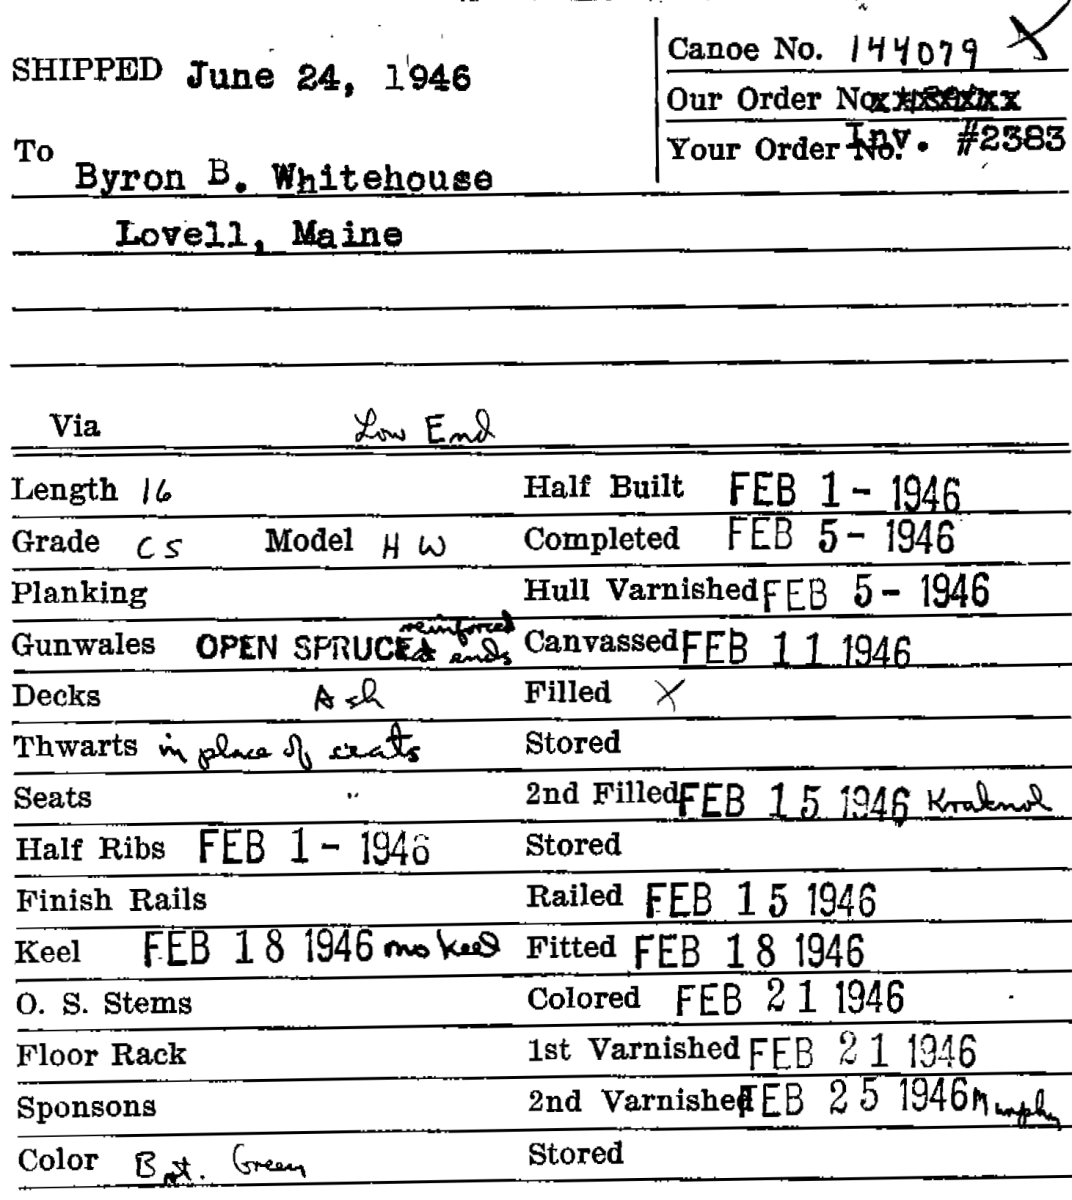 SHIPPED June 24, 1946
Canoe No. 144079 X
Our Order No.
Your Order No. Inv. #2383
To
Byron B. Whitehouse
Lovell, Maine
Via Low End
Length 16 Half Built FEB 1 - 1946
Grade CS Model HW Completed FEB 5 - 1946
Planking Hull Varnished FEB 5 - 1946
Gunwales OPEN SPRUCE reinforced ends Canvassed FEB 11 1946
Decks Ash Filled X
Thwarts in place of seats Stored
Seats " 2nd Filled FEB 15 1946
Half Ribs FEB 1 - 1946 Stored
Finish Rails Railed FEB 15 1946
Keel FEB 18 1946 no keel Fitted FEB 18 1946
O. S. Stems Colored FEB 21 1946
Floor Rack 1st Varnished FEB 21 1946
Sponsons 2nd Varnished FEB 25 1946 Murphy
Color Bat. Green Stored